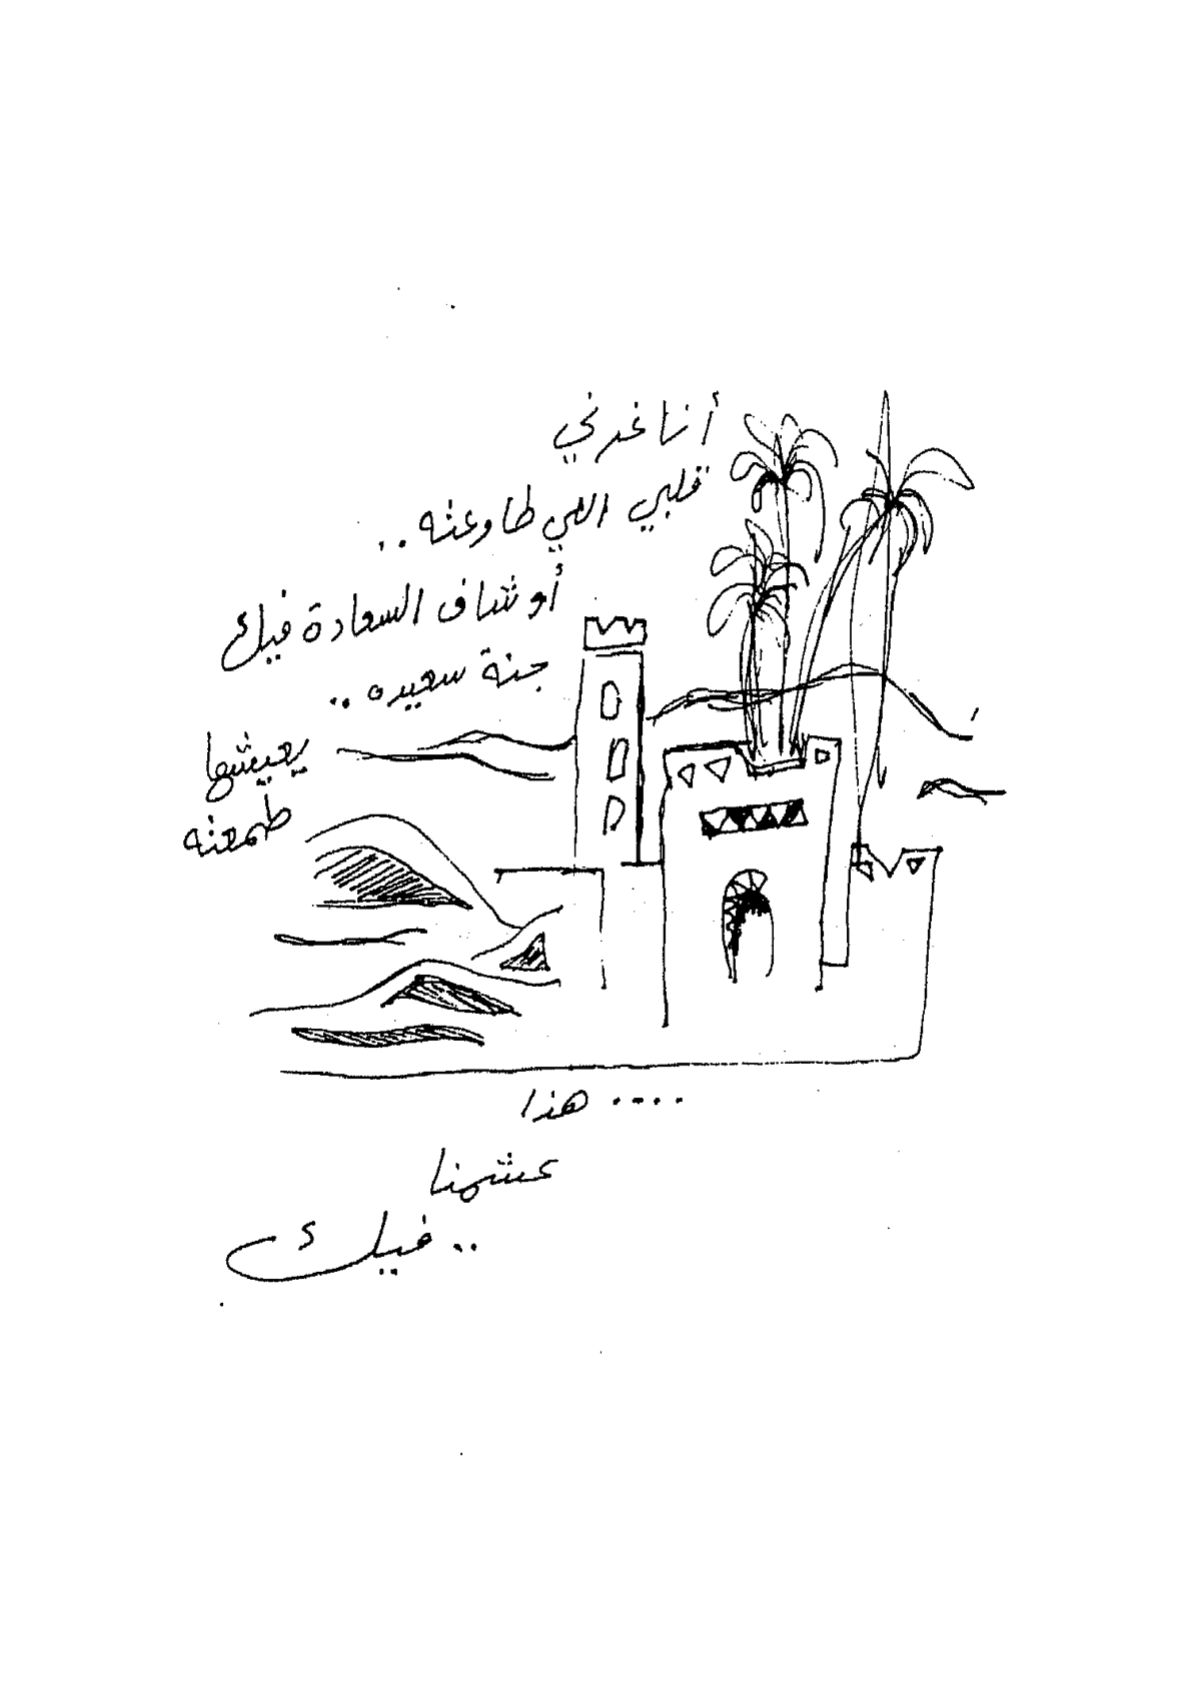 أنا غرني
قلبي اللي طاوعته..
أو شاف السعادة فيك
جنة سعيره..
يعيشها
طمعته
.... هذا
عشمنا
.. فيك